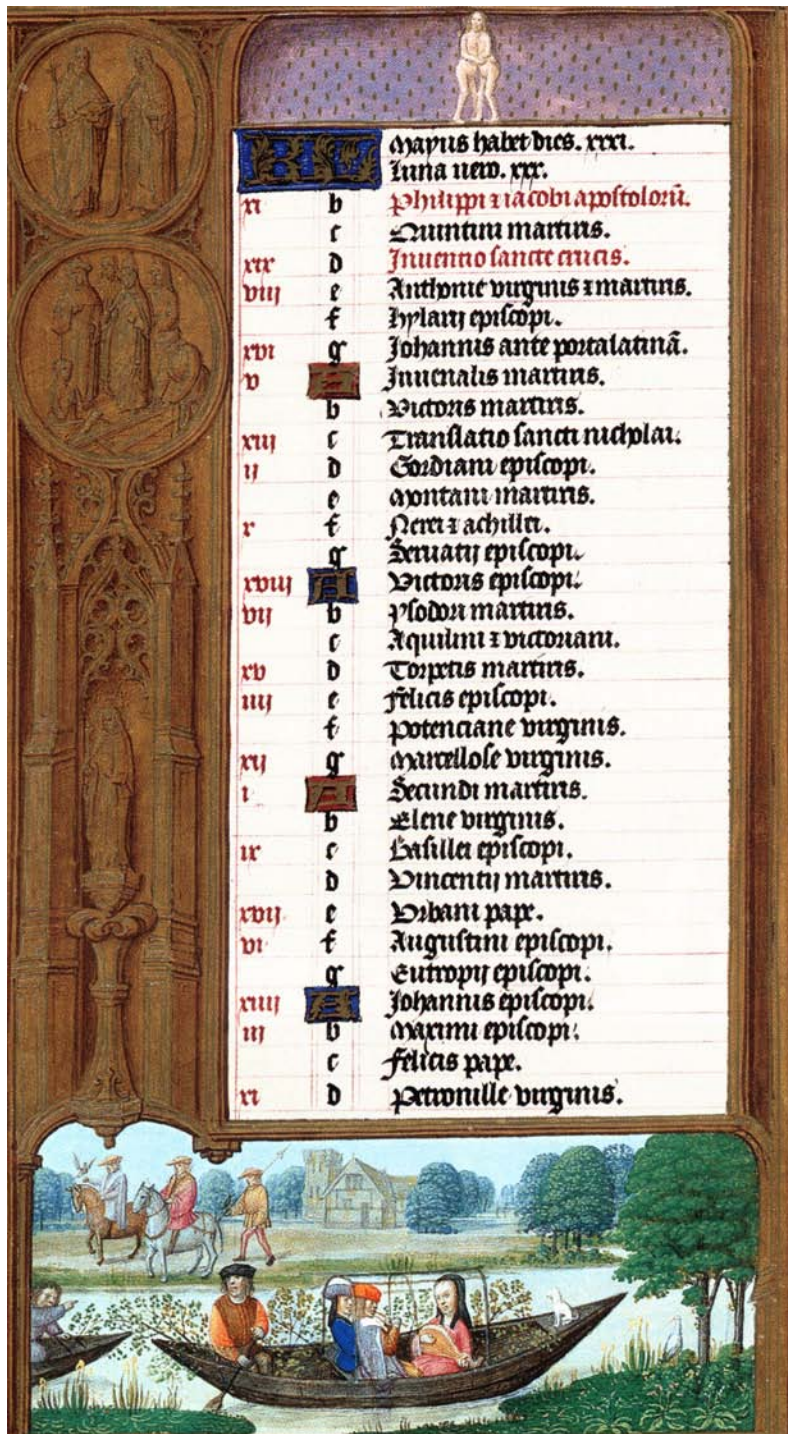 KL Mayus habet dies. xxxi.
Luna vero. xxx.
xi b Philippi ⁊ iacobi apostolorū.
c Quintini martiris.
xix d Inventio sancte crucis.
viij e Anthonie virginis ⁊ martiris.
f hylarij episcopi.
xvi g Johannis ante portalatinā.
v A Juuenalis martiris.
b Victoris martiris.
xiij c Translatio sancti nicholai.
ij d Gordiani episcopi.
e Montani martiris.
x f Nerei ⁊ achillei.
g Seruatij episcopi.
xviij A Victoris episcopi.
vij b ysodori martiris.
c Aquilini ⁊ victoriani.
xv d Torpetis martiris.
iiij e felicis episcopi.
f potenciane virginis.
xij g Marcellose virginis.
i A Secundi martiris.
b Elene virginis.
ix c Basillei episcopi.
d Vincentij martiris.
xvij e Vrbani pape.
vi f Augustini episcopi.
g Eutropij episcopi.
xiiij A Johannis episcopi.
iij b Maximi episcopi.
c felicis pape.
xi d Petronille virginis.